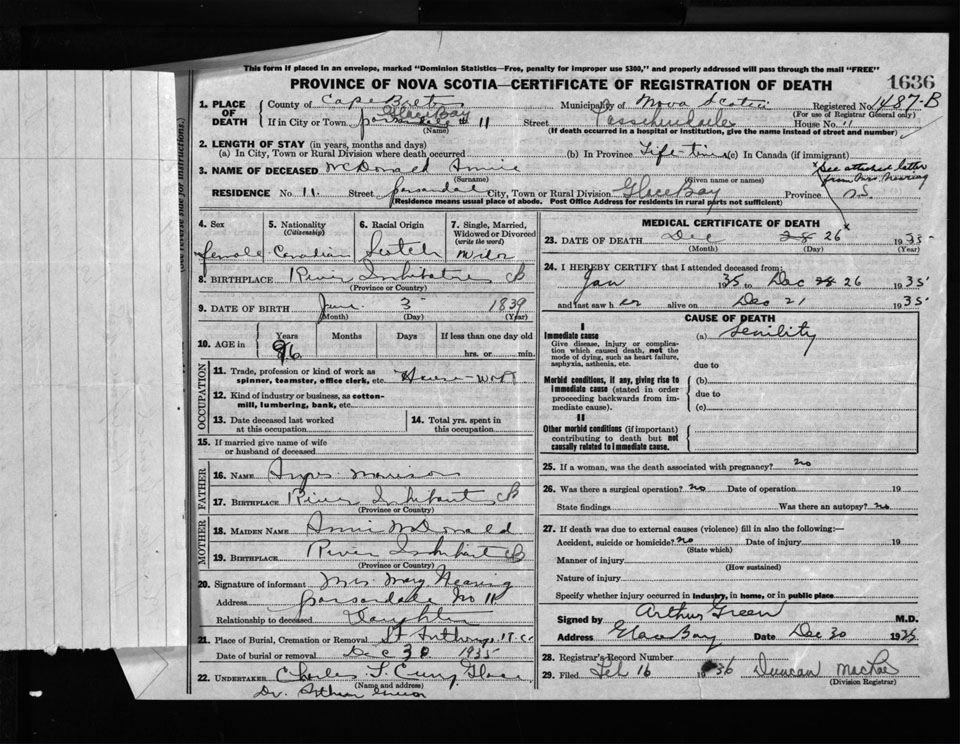 This form if placed in an envelope, marked "Dominion Statistics—Free, penalty for improper use $300," and properly addressed will pass through the mail "FREE"
PROVINCE OF NOVA SCOTIA—CERTIFICATE OF REGISTRATION OF DEATH
1636
1. PLACE OF DEATH
County of Cape Breton
Municipality of Nova Scotia
Registered No. 1487-B
(For use of Registrar General only)
If in City or Town Glace Bay
# 11
(Name)
Street
House No. 11
(If death occurred in a hospital or institution, give the name instead of street and number)
2. LENGTH OF STAY (in years, months and days)
(a) In City, Town or Rural Division where death occurred
(b) In Province Life-time
(c) In Canada (if immigrant)
3. NAME OF DECEASED McDonald Annie
(Surname)
(Given name or names)
* See attached letter
from Mrs. Nearing
RESIDENCE No. 11. Street
City, Town or Rural Division Glace Bay
Province N.S.
(Residence means usual place of abode. Post Office Address for residents in rural parts not sufficient)
4. Sex
female
5. Nationality
(Citizenship)
Canadian
6. Racial Origin
Scotch
7. Single, Married, Widowed or Divorced
(write the word)
8. BIRTHPLACE River
CB
(Province or Country)
9. DATE OF BIRTH June 3 1839
(Month) (Day) (Year)
10. AGE in
Years
Months
Days
If less than one day old
96
hrs. or min.
OCCUPATION
11. Trade, profession or kind of work as spinner, teamster, office clerk, etc. House-work
12. Kind of industry or business, as cotton-mill, lumbering, bank, etc.
13. Date deceased last worked at this occupation
14. Total yrs. spent in this occupation
15. If married give name of wife or husband of deceased
FATHER
16. NAME Angus Morrison
17. BIRTHPLACE River Inhabitants CB
(Province or Country)
MOTHER
18. MAIDEN NAME Annie McDonald
19. BIRTHPLACE River Inhabitants CB
(Province or Country)
20. Signature of informant Mrs Mary Nearing
Address No 11
Relationship to deceased Daughter
21. Place of Burial, Cremation or Removal St Anthony's
Date of burial or removal Dec 30 1935
22. UNDERTAKER Charles
(Name and address)
Dr. Arthur Green
MEDICAL CERTIFICATE OF DEATH
23. DATE OF DEATH Dec 28 26 * 1935
(Month) (Day) (Year)
24. I HEREBY CERTIFY that I attended deceased from:
Jan 1935 to Dec 28 26 1935
and last saw her alive on Dec 21 1935
CAUSE OF DEATH
I
Immediate cause
Give disease, injury or complication which caused death, not the mode of dying, such as heart failure, asphyxia, asthenia, etc.
(a) Senility
due to
Morbid conditions, if any, giving rise to immediate cause (stated in order proceeding backwards from immediate cause).
(b)
due to
(c)
II
Other morbid conditions (if important) contributing to death but not causally related to immediate cause.
25. If a woman, was the death associated with pregnancy? no
26. Was there a surgical operation? no Date of operation 19
State findings Was there an autopsy? no
27. If death was due to external causes (violence) fill in also the following:—
Accident, suicide or homicide? no Date of injury 19
(State which)
Manner of injury
(How sustained)
Nature of injury
Specify whether injury occurred in industry, in home, or in public place
Signed by Arthur Green M.D.
Address Glace Bay Date Dec 30 1935
28. Registrar's Record Number
29. Filed Feb 16 1936 Duncan MacRae
(Division Registrar)